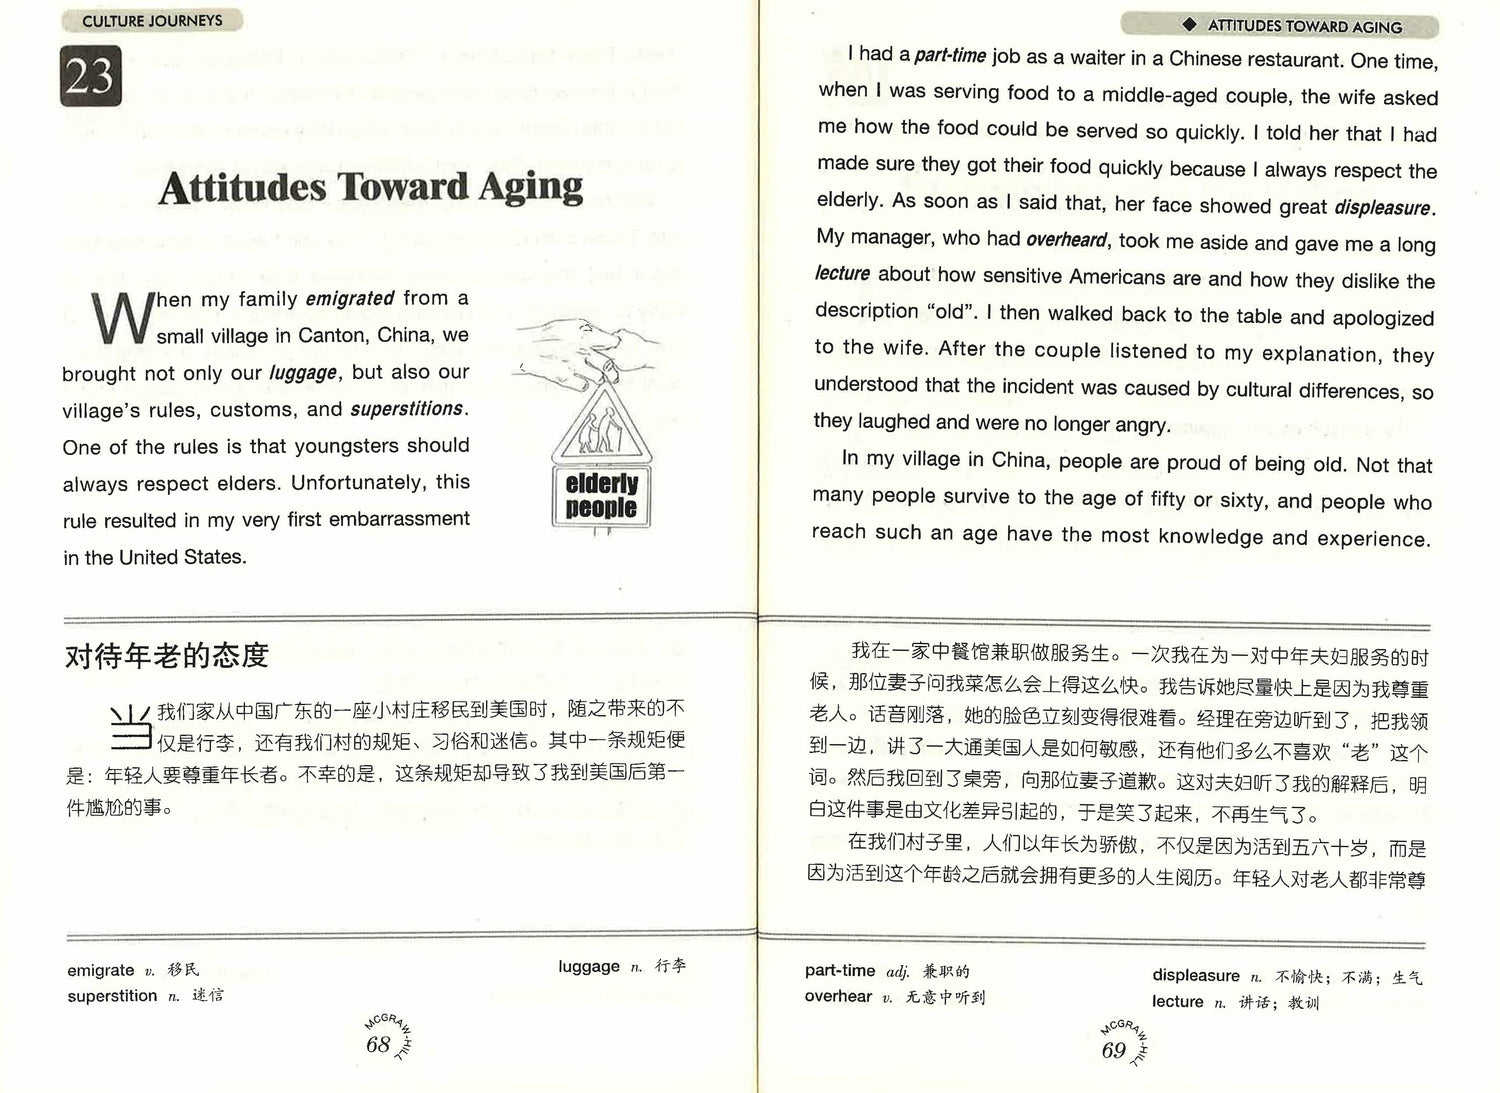 CULTURE JOURNEYS
23
Attitudes Toward Aging
When my family emigrated from a
small village in Canton, China, we
brought not only our luggage, but also our
village's rules, customs, and superstitions.
One of the rules is that youngsters should
always respect elders. Unfortunately, this
rule resulted in my very first embarrassment
in the United States.
elderly
people
对待年老的态度
当我们家从中国广东的一座小村庄移民到美国时，随之带来的不
仅是行李，还有我们村的规矩、习俗和迷信。其中一条规矩便
是：年轻人要尊重年长者。不幸的是，这条规矩却导致了我到美国后第一
件尴尬的事。
emigrate v. 移民
luggage n. 行李
superstition n. 迷信
MCGRAW-HILL
68
◆ ATTITUDES TOWARD AGING
I had a part-time job as a waiter in a Chinese restaurant. One time,
when I was serving food to a middle-aged couple, the wife asked
me how the food could be served so quickly. I told her that I had
made sure they got their food quickly because I always respect the
elderly. As soon as I said that, her face showed great displeasure.
My manager, who had overheard, took me aside and gave me a long
lecture about how sensitive Americans are and how they dislike the
description “old”. I then walked back to the table and apologized
to the wife. After the couple listened to my explanation, they
understood that the incident was caused by cultural differences, so
they laughed and were no longer angry.
In my village in China, people are proud of being old. Not that
many people survive to the age of fifty or sixty, and people who
reach such an age have the most knowledge and experience.
我在一家中餐馆兼职做服务生。一次我在为一对中年夫妇服务的时
候，那位妻子问我菜怎么会上得这么快。我告诉她尽量快上是因为我尊重
老人。话音刚落，她的脸色立刻变得很难看。经理在旁边听到了，把我领
到一边，讲了一大通美国人是如何敏感，还有他们多么不喜欢“老”这个
词。然后我回到了桌旁，向那位妻子道歉。这对夫妇听了我的解释后，明
白这件事是由文化差异引起的，于是笑了起来，不再生气了。
在我们村子里，人们以年长为骄傲，不仅是因为活到五六十岁，而是
因为活到这个年龄之后就会拥有更多的人生阅历。年轻人对老人都非常尊
part-time adj. 兼职的
displeasure n. 不愉快；不满；生气
overhear v. 无意中听到
lecture n. 讲话；教训
MCGRAW-HILL
69